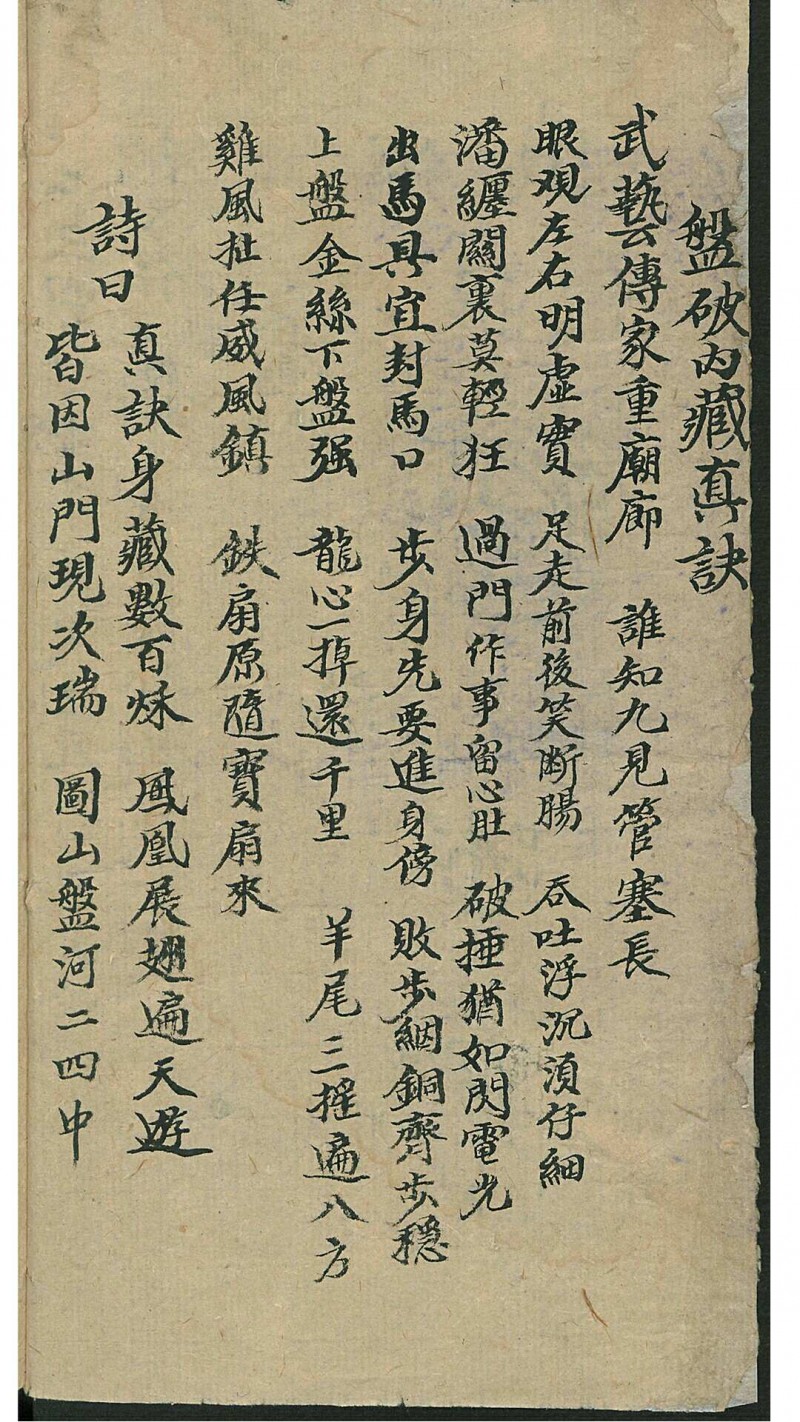 盤破內藏真訣
武藝傳家重廟廊　誰知九見管塞長
眼观左右明虛實　足走前後笑断腸　吞吐浮沉湏仔細
潘纒闗裏莫輕狂　過門作事留心肚　破捶猶如閃電光
出馬具宜封馬口　步身先要進身傍　敗步絪銅齊步穩
上盤金絲下盤强　龍心一掉還千里　羊尾三摇遍八方
雞風扯任威風鎮　鉄扇原隨寶扇來
詩曰
真訣身藏數百烌　凮凰展翅遍天遊
皆因山門現次瑞　圖山盤河二四中